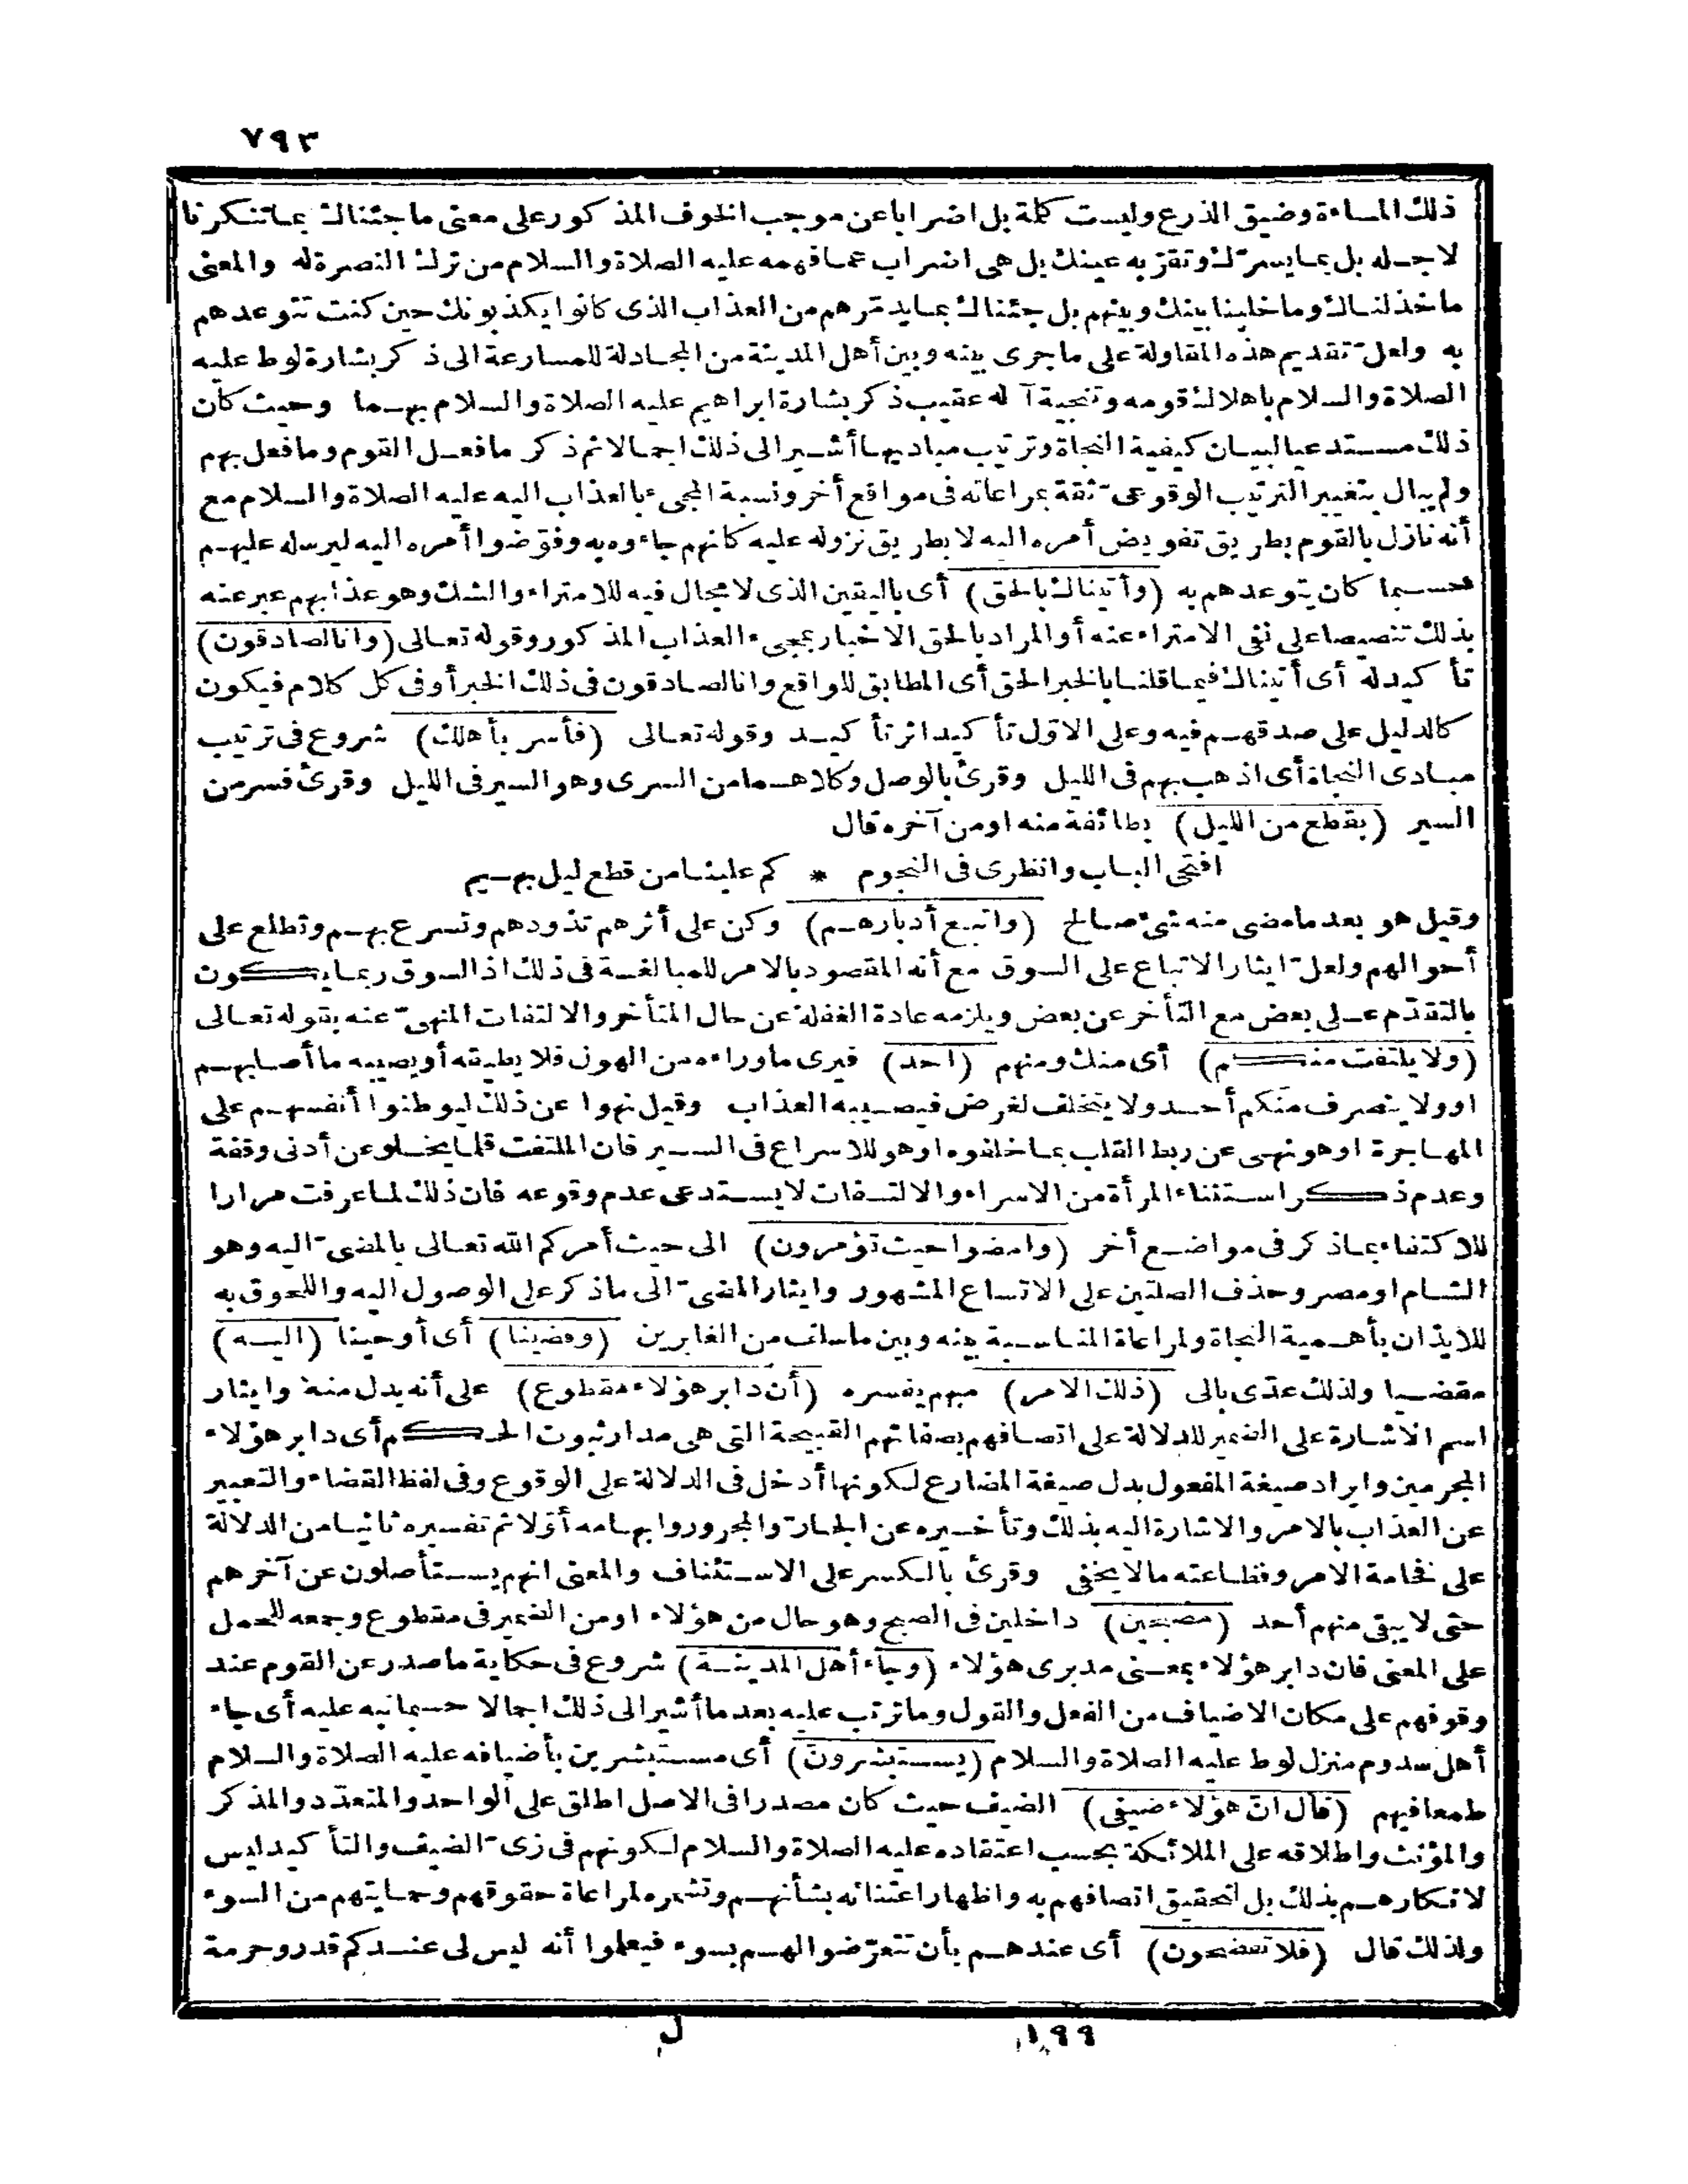 ٧٩٣
ذلك المساءة وضيق الذرع وليست كلمة بل اضرابا عن موجب الخوف المذكور على معنى ما جئناك بما تنكرنا
لاجله بل بما يسرّك وتقرّ به عينك بل هى اضراب عما فهمه عليه الصلاة والسلام من ترك النصرة له والمعنى
ما خذلناك وما خلينا بينك وبينهم بل جئناك بما يدمّرهم من العذاب الذى كانوا يكذبونك حين كنت تتوعدهم
به ولعلّ تقديم هذه المقاولة على ما جرى بينه وبين أهل المدينة من المجادلة للمسارعة الى ذكر بشارة لوط عليه
الصلاة والسلام باهلاك قومه وتنجية آله عقيب ذكر بشارة ابراهيم عليه الصلاة والسلام بهما وحيث كان
ذلك مستدعيا لبيان كيفية النجاة وترتيب مباديها أشير الى ذلك اجمالا ثم ذكر ما فعل القوم وما فعل بهم
ولم يبال بتغيير الترتيب الوقوعىّ ثقة بمراعاته فى مواقع أخر ونسبة المجىء بالعذاب اليه عليه الصلاة والسلام مع
أنه نازل بالقوم بطريق تفويض أمره اليه لا بطريق نزوله عليه كانهم جاءوه به وفوّضوا أمره اليه ليرسله عليهم
حسبما كان يتوعدهم به (وأتيناك بالحق) أى باليقين الذى لا مجال فيه للامتراء والشك وهو عذابهم عبر عنه
بذلك تنصيصا على نفى الامتراء عنه أو المراد بالحق الاخبار بمجىء العذاب المذكور وقوله تعالى (وانا لصادقون)
تأكيد له أى أتيناك فيما قلنا بالخبر الحق أى المطابق للواقع وانا لصادقون فى ذلك الخبر أو فى كل كلام فيكون
كالدليل على صدقهم فيه وعلى الاوّل تأكيد اثر تأكيد وقوله تعالى (فأسر بأهلك) شروع فى ترتيب
مبادى النجاة أى اذهب بهم فى الليل وقرئ بالوصل وكلاهما من السرى وهو السير فى الليل وقرئ فسر من
السير (بقطع من الليل) بطائفة منه او من آخره قال
افتحى الباب وانظرى فى النجوم * كم علينا من قطع ليل بهيم
وقيل هو بعد ما مضى منه شئ صالح (واتبع أدبارهم) وكن على أثرهم تذودهم وتسرع بهم وتطلع على
أحوالهم ولعلّ ايثار الاتباع على السوق مع أنه المقصود بالامر للمبالغة فى ذلك اذ السوق ربما يكون
بالتقدّم على بعض مع التأخر عن بعض ويلزمه عادة الغفلة عن حال المتأخر والالتفات المنهىّ عنه بقوله تعالى
(ولا يلتفت منكم) أى منك ومنهم (احد) فيرى ما وراءه من الهول فلا يطيقه أو يصيبه ما أصابهم
او ولا ينصرف منكم أحد ولا يتخلف لغرض فيصيبه العذاب وقيل نهوا عن ذلك ليوطنوا أنفسهم على
المهاجرة او هو نهى عن ربط القلب بما خلفوه او هو للاسراع فى السير فان الملتفت قلما يخلو عن أدنى وقفة
وعدم ذكر استثناء المرأة من الاسراء والالتفات لا يستدعى عدم وقوعه فان ذلك لما عرفت مرارا
للاكتفاء بما ذكر فى مواضع أخر (وامضوا حيث تؤمرون) الى حيث أمركم الله تعالى بالمضىّ اليه وهو
الشام او مصر وحذف الصلتين على الاتساع المشهور وايثار المضىّ الى ما ذكر على الوصول اليه واللحوق به
للايذان بأهمية النجاة ولمراعاة المناسبة بينه وبين ما سلف من الغابرين (وقضينا) أى أوحينا (اليه)
مقضيا ولذلك عدّى بالى (ذلك الامر) مبهم يفسره (أن دابر هؤلاء مقطوع) على أنه بدل منه وايثار
اسم الاشارة على الضمير للدلالة على اتصافهم بصفاتهم القبيحة التى هى مدار ثبوت الحكم أى دابر هؤلاء
المجرمين وايراد صيغة المفعول بدل صيغة المضارع لكونها أدخل فى الدلالة على الوقوع وفى لفظ القضاء والتعبير
عن العذاب بالامر والاشارة اليه بذلك وتأخيره عن الجارّ والمجرور وابهامه أوّلا ثم تفسيره ثانيا من الدلالة
على فخامة الامر وفظاعته مالا يخفى وقرئ بالكسر على الاستئناف والمعنى انهم يستأصلون عن آخرهم
حتى لا يبقى منهم أحد (مصبحين) داخلين فى الصبح وهو حال من هؤلاء او من الضمير فى مقطوع وجمعه للحمل
على المعنى فان دابر هؤلاء بمعنى مدبرى هؤلاء (وجاء أهل المدينة) شروع فى حكاية ما صدر عن القوم عند
وقوفهم على مكان الاضياف من الفعل والقول وما ترتب عليه بعد ما أشير الى ذلك اجمالا حسبما نبه عليه أى جاء
أهل سدوم منزل لوط عليه الصلاة والسلام (يستبشرون) أى مستبشرين بأضيافه عليه الصلاة والسلام
طمعا فيهم (قال انّ هؤلاء ضيفى) الضيف حيث كان مصدرا فى الاصل اطلق على الواحد والمتعدّد والمذكر
والمؤنث واطلاقه على الملائكة بحسب اعتقاده عليه الصلاة والسلام لكونهم فى زىّ الضيف والتأكيد ليس
لانكارهم بذلك بل لتحقيق اتصافهم به واظهار اعتنائه بشأنهم وتشمره لمراعاة حقوقهم وحمايتهم من السوء
ولذلك قال (فلا تفضحون) أى عندهم بأن تتعرّضوا لهم بسوء فيعلموا أنه ليس لى عندكم قدر وحرمة
١٩٩ ل